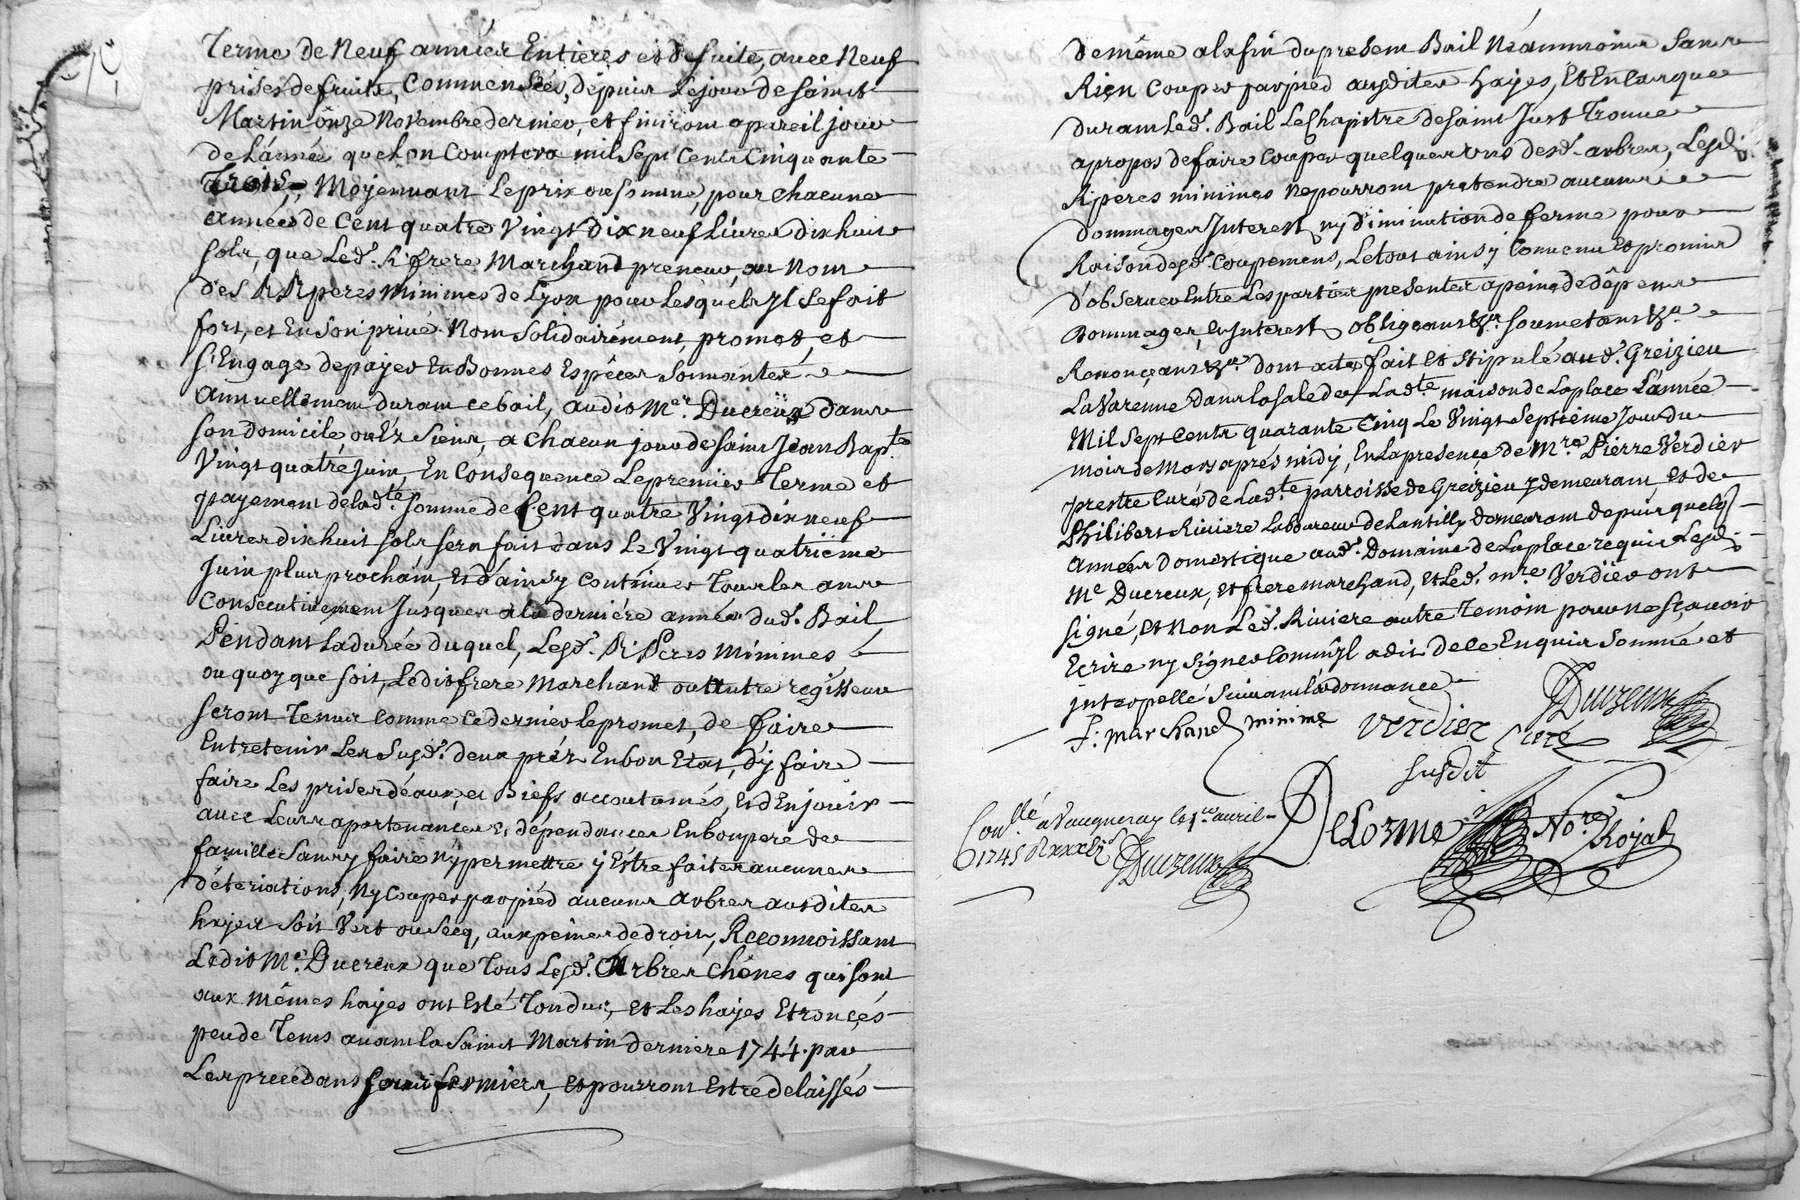 Terme de Neuf années Entieres et de suite, avec Neuf
prises de fruits, Commensées, dépuis le jour de saint
Martin ônze Novembre dernier, et finiront a pareil jour
de L'année que Lon Comptera mil sept Cents Cinquante
Trois, Moyennant Le prix ou somme, pour chacune
année de Cent quatre Vingt Dix neuf Livres dix huit
sols, que Led. R. frere Marchand preneur, au Nom
des RR peres Minimes de Lyon pour Lesquels Jl se fait
fort, et En son privé Nom solidairément, promet, et
s'Engage de payer En Bonnes Espéces sonnantes
annuellement durant ce bail, audit Me. Ducreux dans
son domicile, ou Ez siens, a Chacun jour de saint Jean Bapte.
Vingt quatre juin, En Consequence Le premier Terme et
payement de lad.te somme de Cent quatre Vingt dix neuf
Livres dix huit sols sera fait dans Le Vingt quatrième
Juin plus prochain, Et d'ainsy Continuer Tous les ans
Consecutivement Jusques a la derniére année dud. Bail
Pendant la durée duquel, Lesd. R Peres Minimes
ou quoy que soit, Ledit frere Marchand ou Autre regisseur
seront Tenus Comme ce dernier le promet, de faire
Entretenir Les Susd. deux prés En bon Etat, d'y faire
faire Les prises d'eaux, et Biefs accoutumés, Et d'En jouir
avec Leurs apartenances Et dépendances En bon pere de
famille sans y faire Ny permettre y Estre faites aucunes
déteriations, Ny Couper par piéd aucuns arbres aux dites
hayes soit Vert ou Secq, aux peines de droit, Reconnoissant
Ledit Me. Ducreux que Tous Lesd. Arbres Chênes qui sont
aux mêmes hayes ont Esté Tondus, et Les hayes Etronçés
peu de Tems avant la Saint Martin derniere 1744. par
Les precedans fermiers, et pourront Estre delaissés
de même a la fin du present Bail Néanmoins sans
Rien Couper par pied ausdites hayes, Et En Cas que
durant Led. Bail Le Chapitre de saint Just Trouve
a propos de faire Couper quelques uns desd. arbres, Lesd.
R peres minimes Ne pourront pretendre aucuns
dommages Interest, ny diminution de ferme pour
Raison desd. Coupemens, Le tout ainsy Convenu Et promis
d'observer Entre Les parties presentes a peine de dépens
Dommages, Et Interest, obligeans &a. soumetans &a.
Renonçeans &a. dont acte fait Et stipulé aud. Greizieu
La Varenne dans la sale de Lad.te maison de Laplace L'année
Mil Sept Cents quarante Cinq Le Vingt Septième Jour du
mois de Mars aprés midy, En La presence de Mre. Pierre Verdier
prestre Curé de Lad.te parroisse de Greizieu y demeurant, et de
Philibert Riviere Laboureur de Lantilly demeurant depuis quelqs.
années domestique aud. Domaine de Laplace requis Lesd.
Me Ducreux, et frere marchand, et Led. mre Verdier ont
signé, Et Non Led. Riviere autre Temoin pour ne sçavoir
Ecrire ny signer Comm'jl a dit de ce Enquis sommé et
interpellé suivant L'ordonnance
f: marchand minime Verdier Curé Ducreux
susdit
DeLorme Nore. Royal
Conllé. a Vaugneray le 1er avril
1745 R xxx Ls. Ducreux